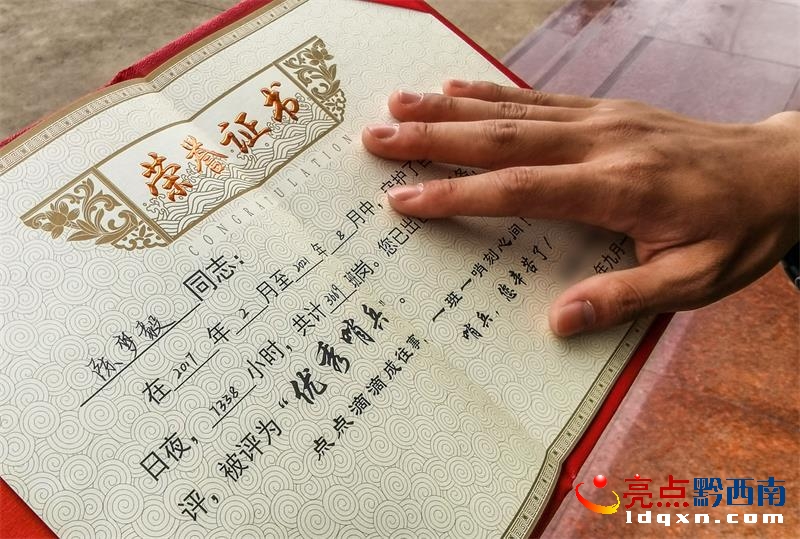 荣誉证书
CONGRATULATION
同志：
在2017年2月至2021年8月中，守护了
日夜，7338小时，共计3669班岗。您已出
评，被评为“优秀哨兵”。
点点滴滴成往事，一班一哨刻心间！
哨兵，您辛苦了！
年九月一
亮点黔西南
ldqxn.com